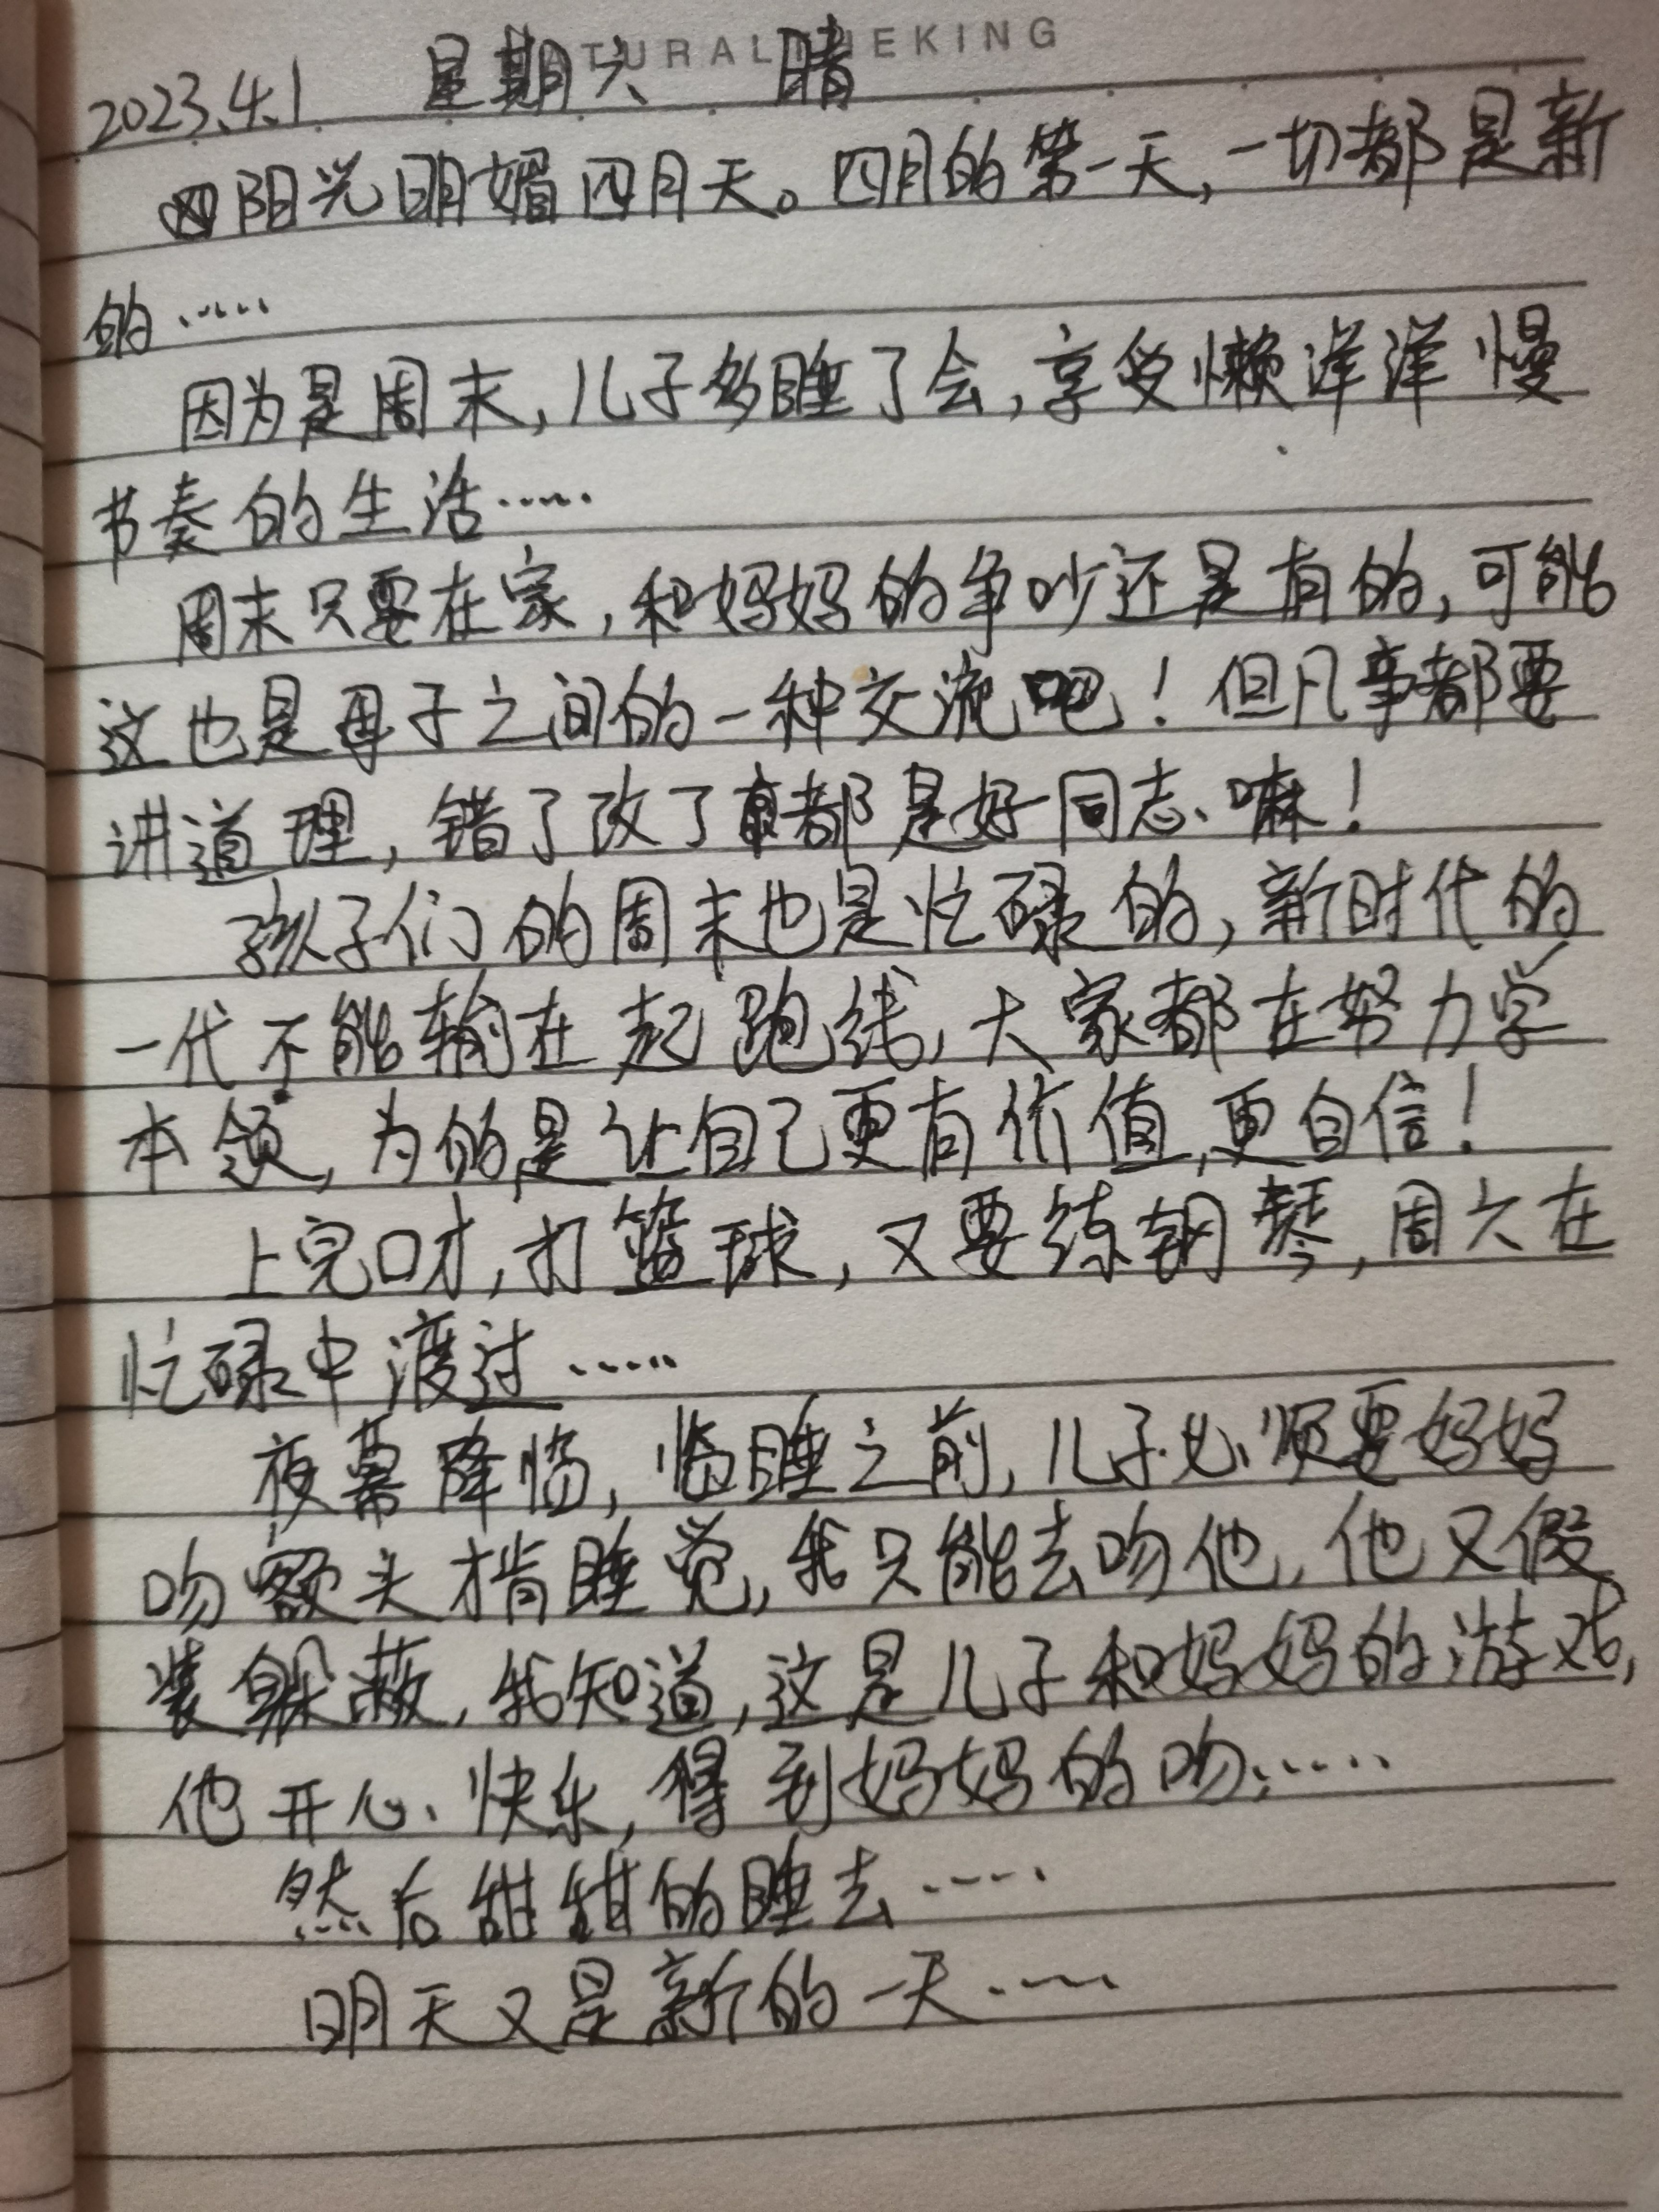 NATURAL THEKING
2023.4.1 星期六 晴
阳光明媚四月天。四月的第一天,一切都是新
的……
因为是周末,儿子多睡了会,享受懒洋洋慢
节奏的生活……
周末只要在家,和妈妈的争吵还是有的,可能
这也是母子之间的一种交流吧!但凡事都要
讲道理,错了改了都是好同志嘛!
孩子们的周末也是忙碌的,新时代的
一代不能输在起跑线,大家都在努力学
本领,为的是让自己更有价值,更自信!
上完口才,打篮球,又要练钢琴,周六在
忙碌中渡过……
夜幕降临,临睡之前,儿子必须要妈妈
吻额头才肯睡觉,我只能去吻他,他又假
装躲蔽,我知道,这是儿子和妈妈的游戏,
他开心、快乐,得到妈妈的吻……
然后甜甜的睡去……
明天又是新的一天……